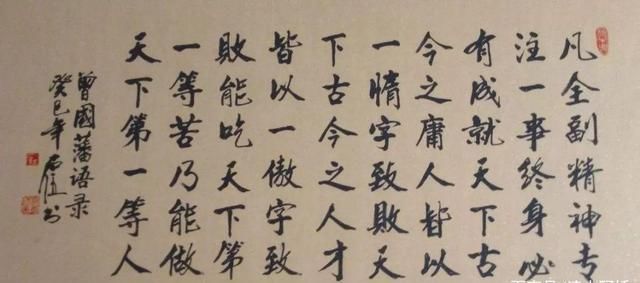 凡全副精神专
注一事終身必
有成就天下古
今之庸人皆以
一惰字致敗天
下古今之人才
皆以一傲字致
敗能吃天下第
一等苦乃能做
天下第一等人
曾國藩语录
癸巳年